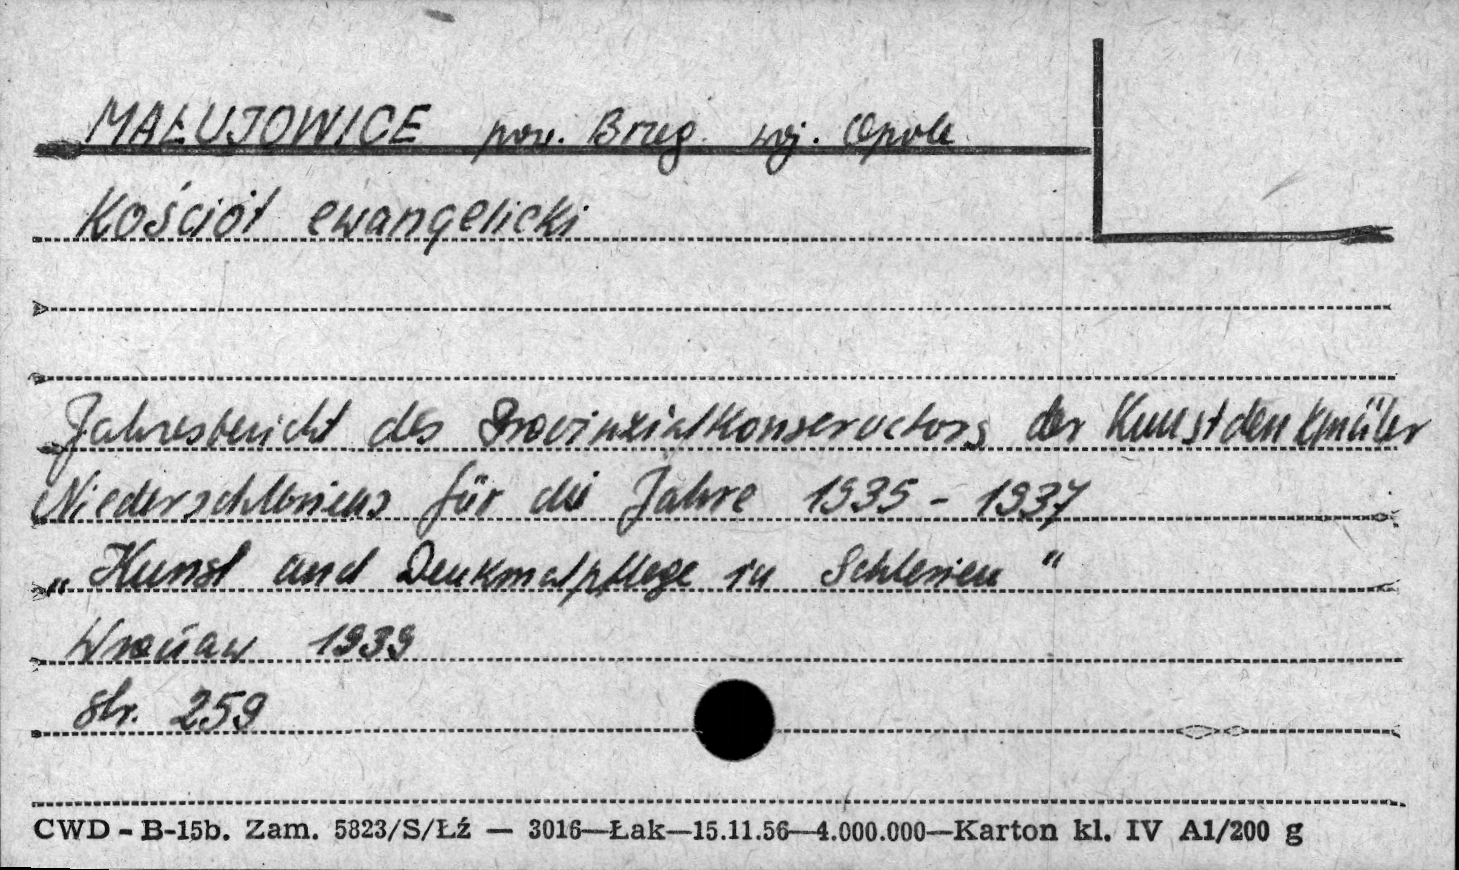 MAŁUJOWICE pow. Brzeg. woj. Opole
Kościół ewangelicki
Jahresbericht des Provinzialkonservators der Kunstdenkmäler
Niederschlesiens für die Jahre 1935 - 1937
„Kunst und Denkmalpflege in Schlesien"
Wrocław 1939
str. 259
CWD - B-15b. Zam. 5823/S/Łź — 3016—Łak—15.11.56—4.000.000—Karton kl. IV A1/200 g